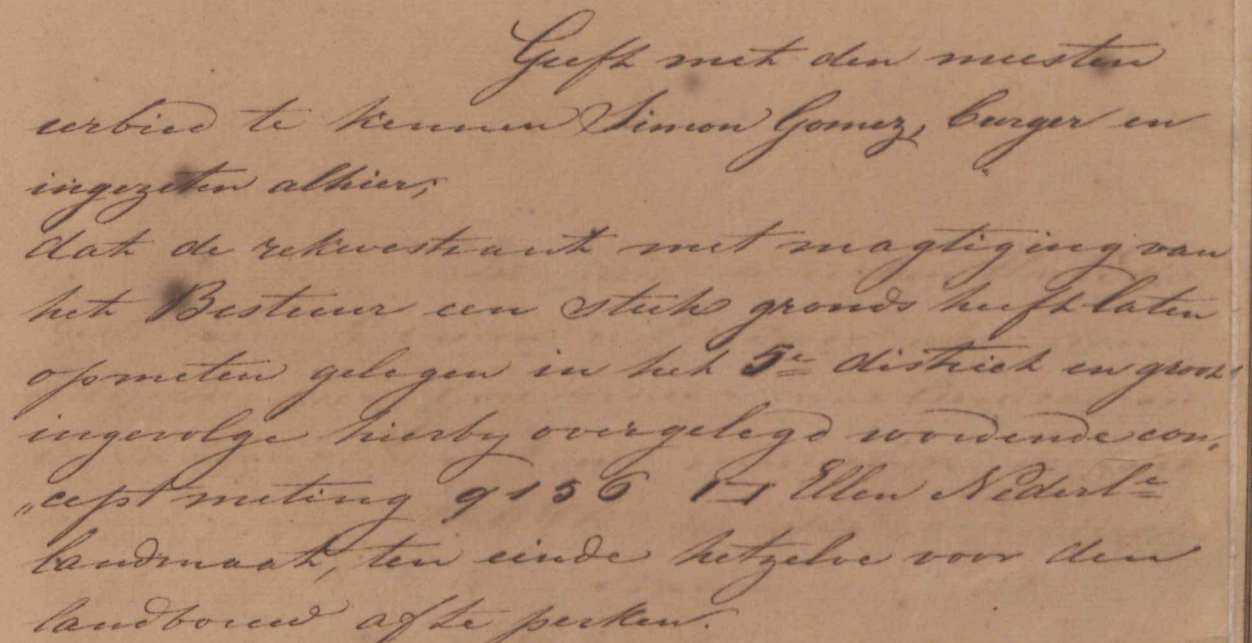 Geeft met den meesten
eerbied te kennen Simon Gomez, burger en
ingezeten alhier;
dat de rekwestrant met magtiging van
het Bestuur een stuk gronds heeft laten
opmeten gelegen in het 5e district en groot
ingevolge hierby overgelegd wordende con„
„cept meting 9156 □ Ellen Nederl.e
landmaat, ten einde hetzelve voor den
landbouw af te perken.